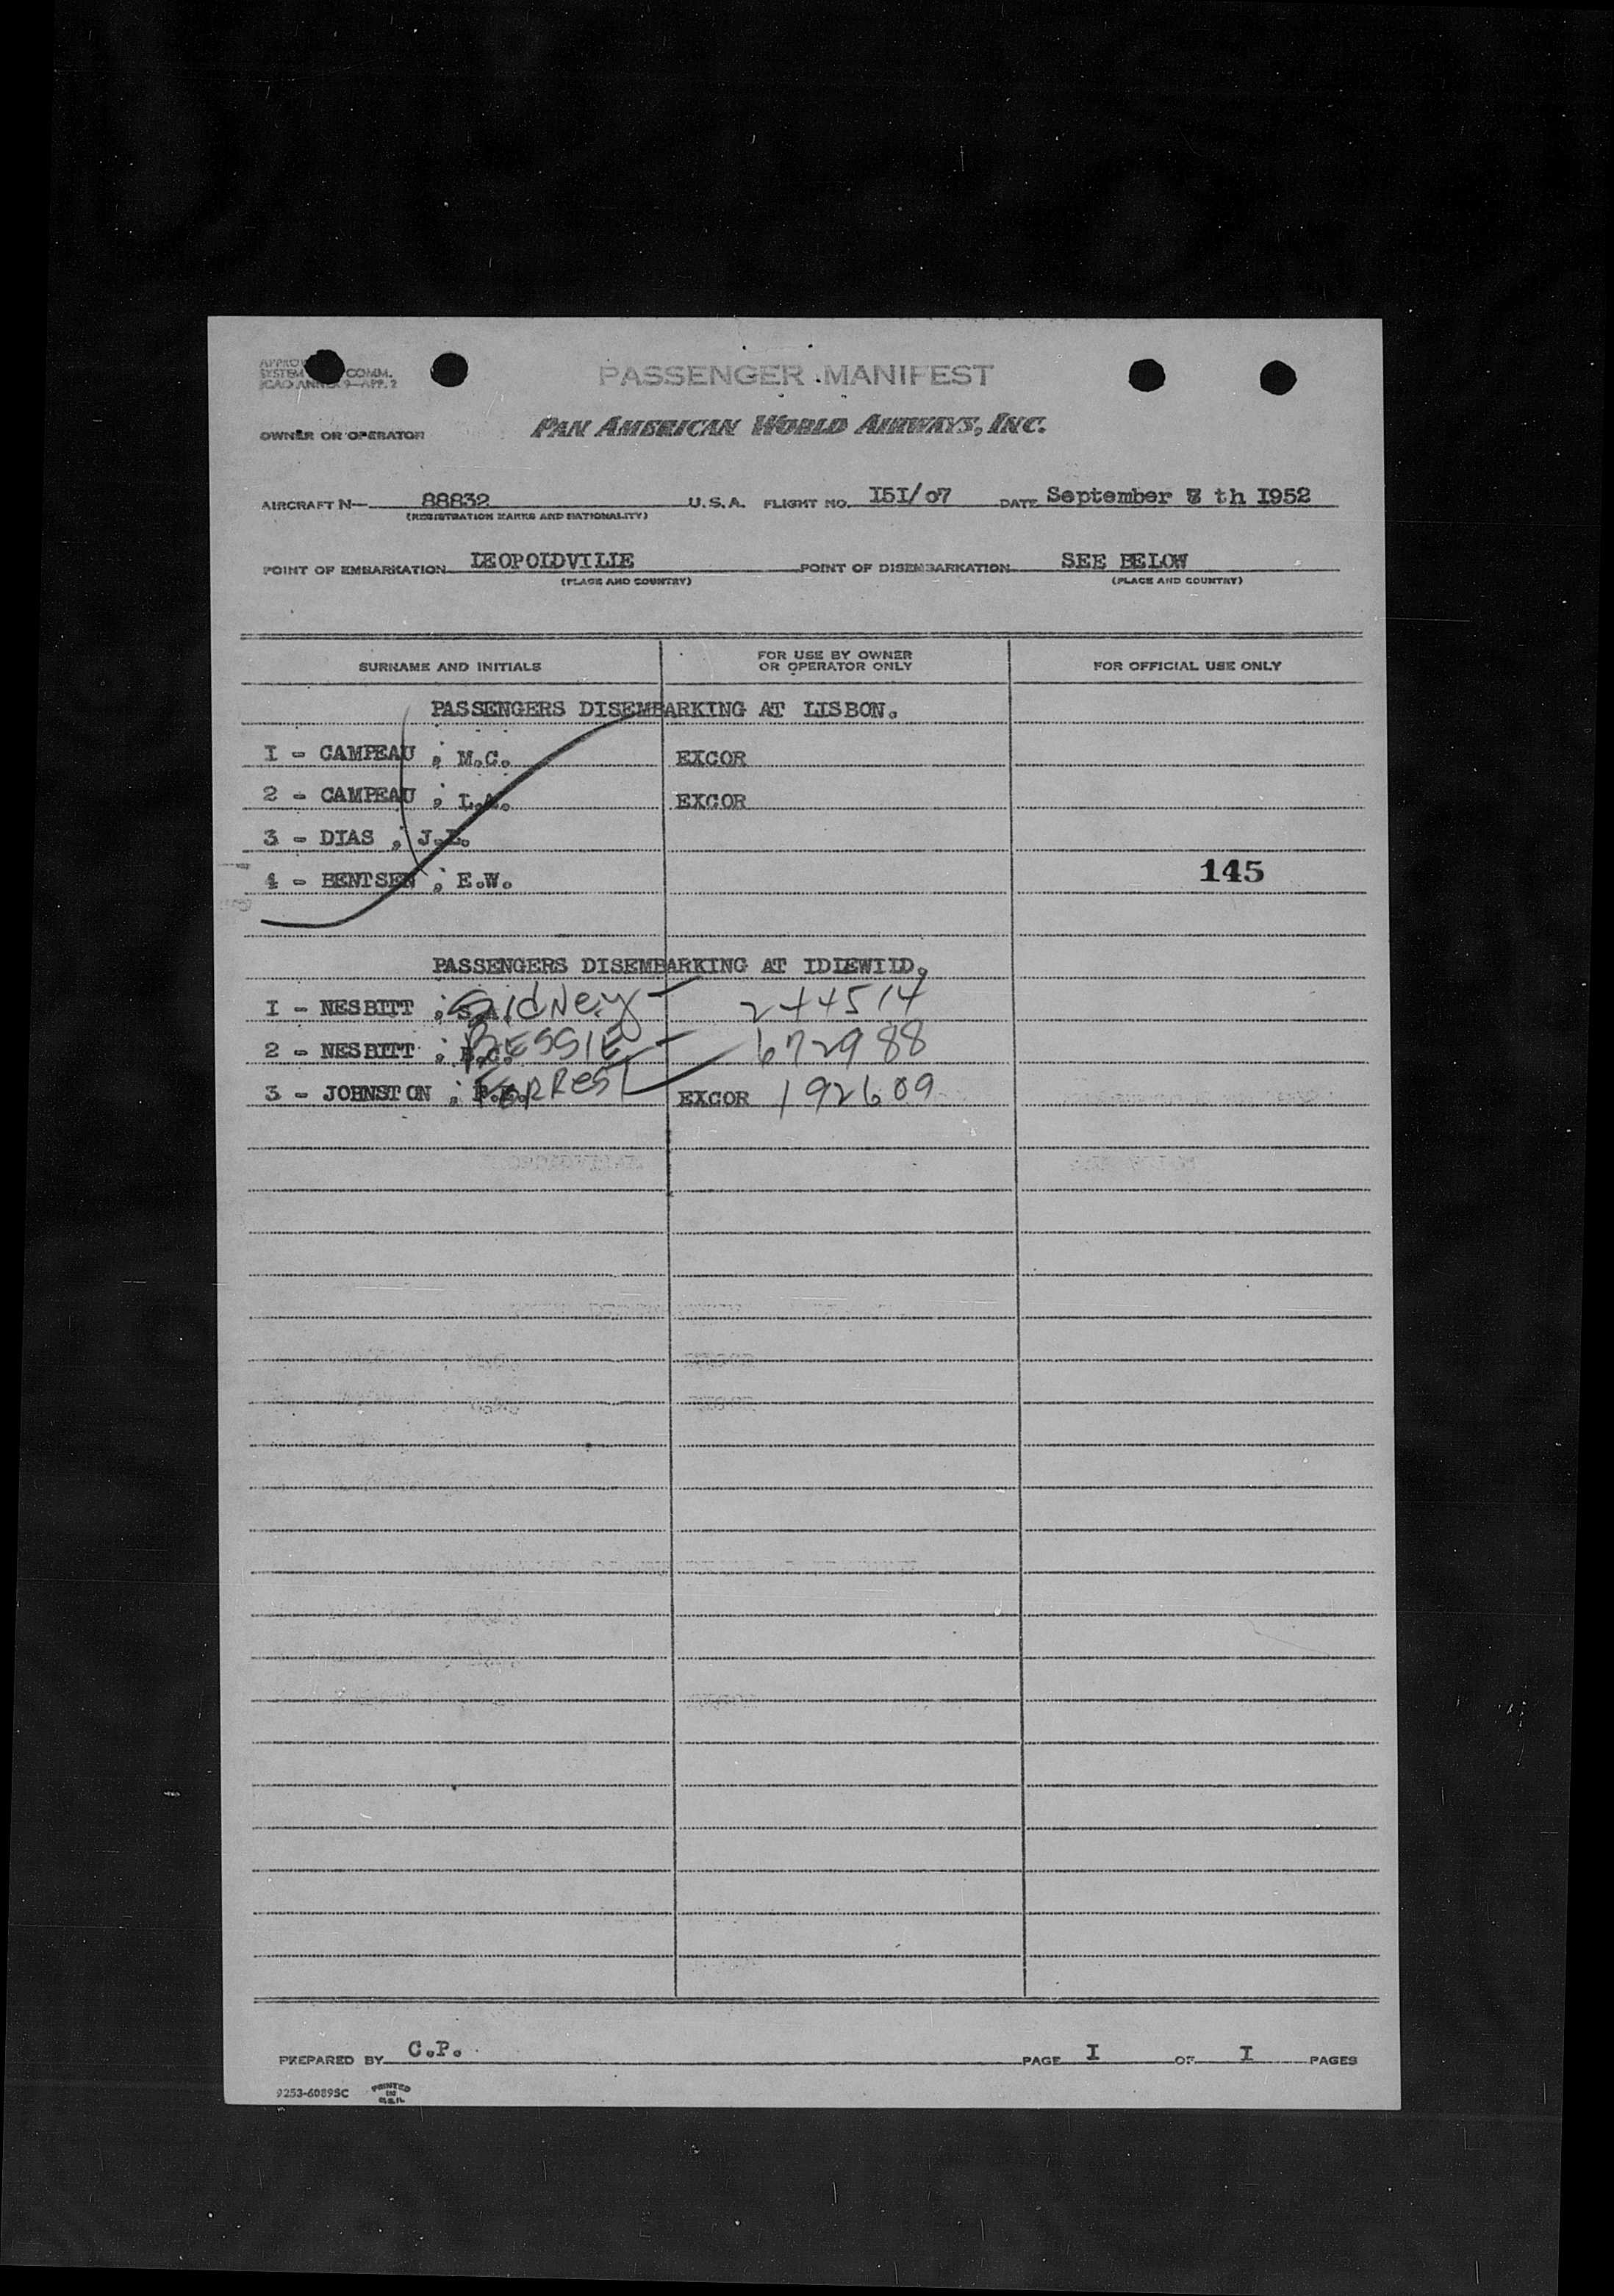 SYSTEM COMM.
ICAO ANNEX 9—APP. 2
PASSENGER MANIFEST
OWNER OR OPERATOR PAN AMERICAN WORLD AIRWAYS, INC.
AIRCRAFT N— 88832 U.S.A. FLIGHT NO. I5I/07 DATE September th I952
(REGISTRATION MARKS AND NATIONALITY)
POINT OF EMBARKATION LEOPOLDVILLE POINT OF DISEMBARKATION SEE BELOW
(PLACE AND COUNTRY) (PLACE AND COUNTRY)
SURNAME AND INITIALS FOR USE BY OWNER OR OPERATOR ONLY FOR OFFICIAL USE ONLY
PASSENGERS DISEMBARKING AT LISBON.
I - CAMPEAU ; M.C. EXCOR
2 - CAMPEAU ; L.A. EXCOR
3 - DIAS ; J.
4 - BENTSEN ; E.W. 145
PASSENGERS DISEMBARKING AT IDLEWILD.
I - NESBITT ; Sidney 244514
2 - NESBITT ; BESSIE 672988
3 - JOHNSTON ; FORREST EXCOR 192609
PREPARED BY C.P. PAGE I OF I PAGES
9253-6089SC PRINTED IN U.S.A.